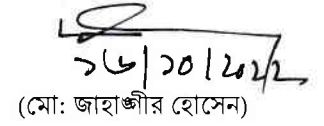 ১৬/১০/২০২২
(মো: জাহাঙ্গীর হোসেন)